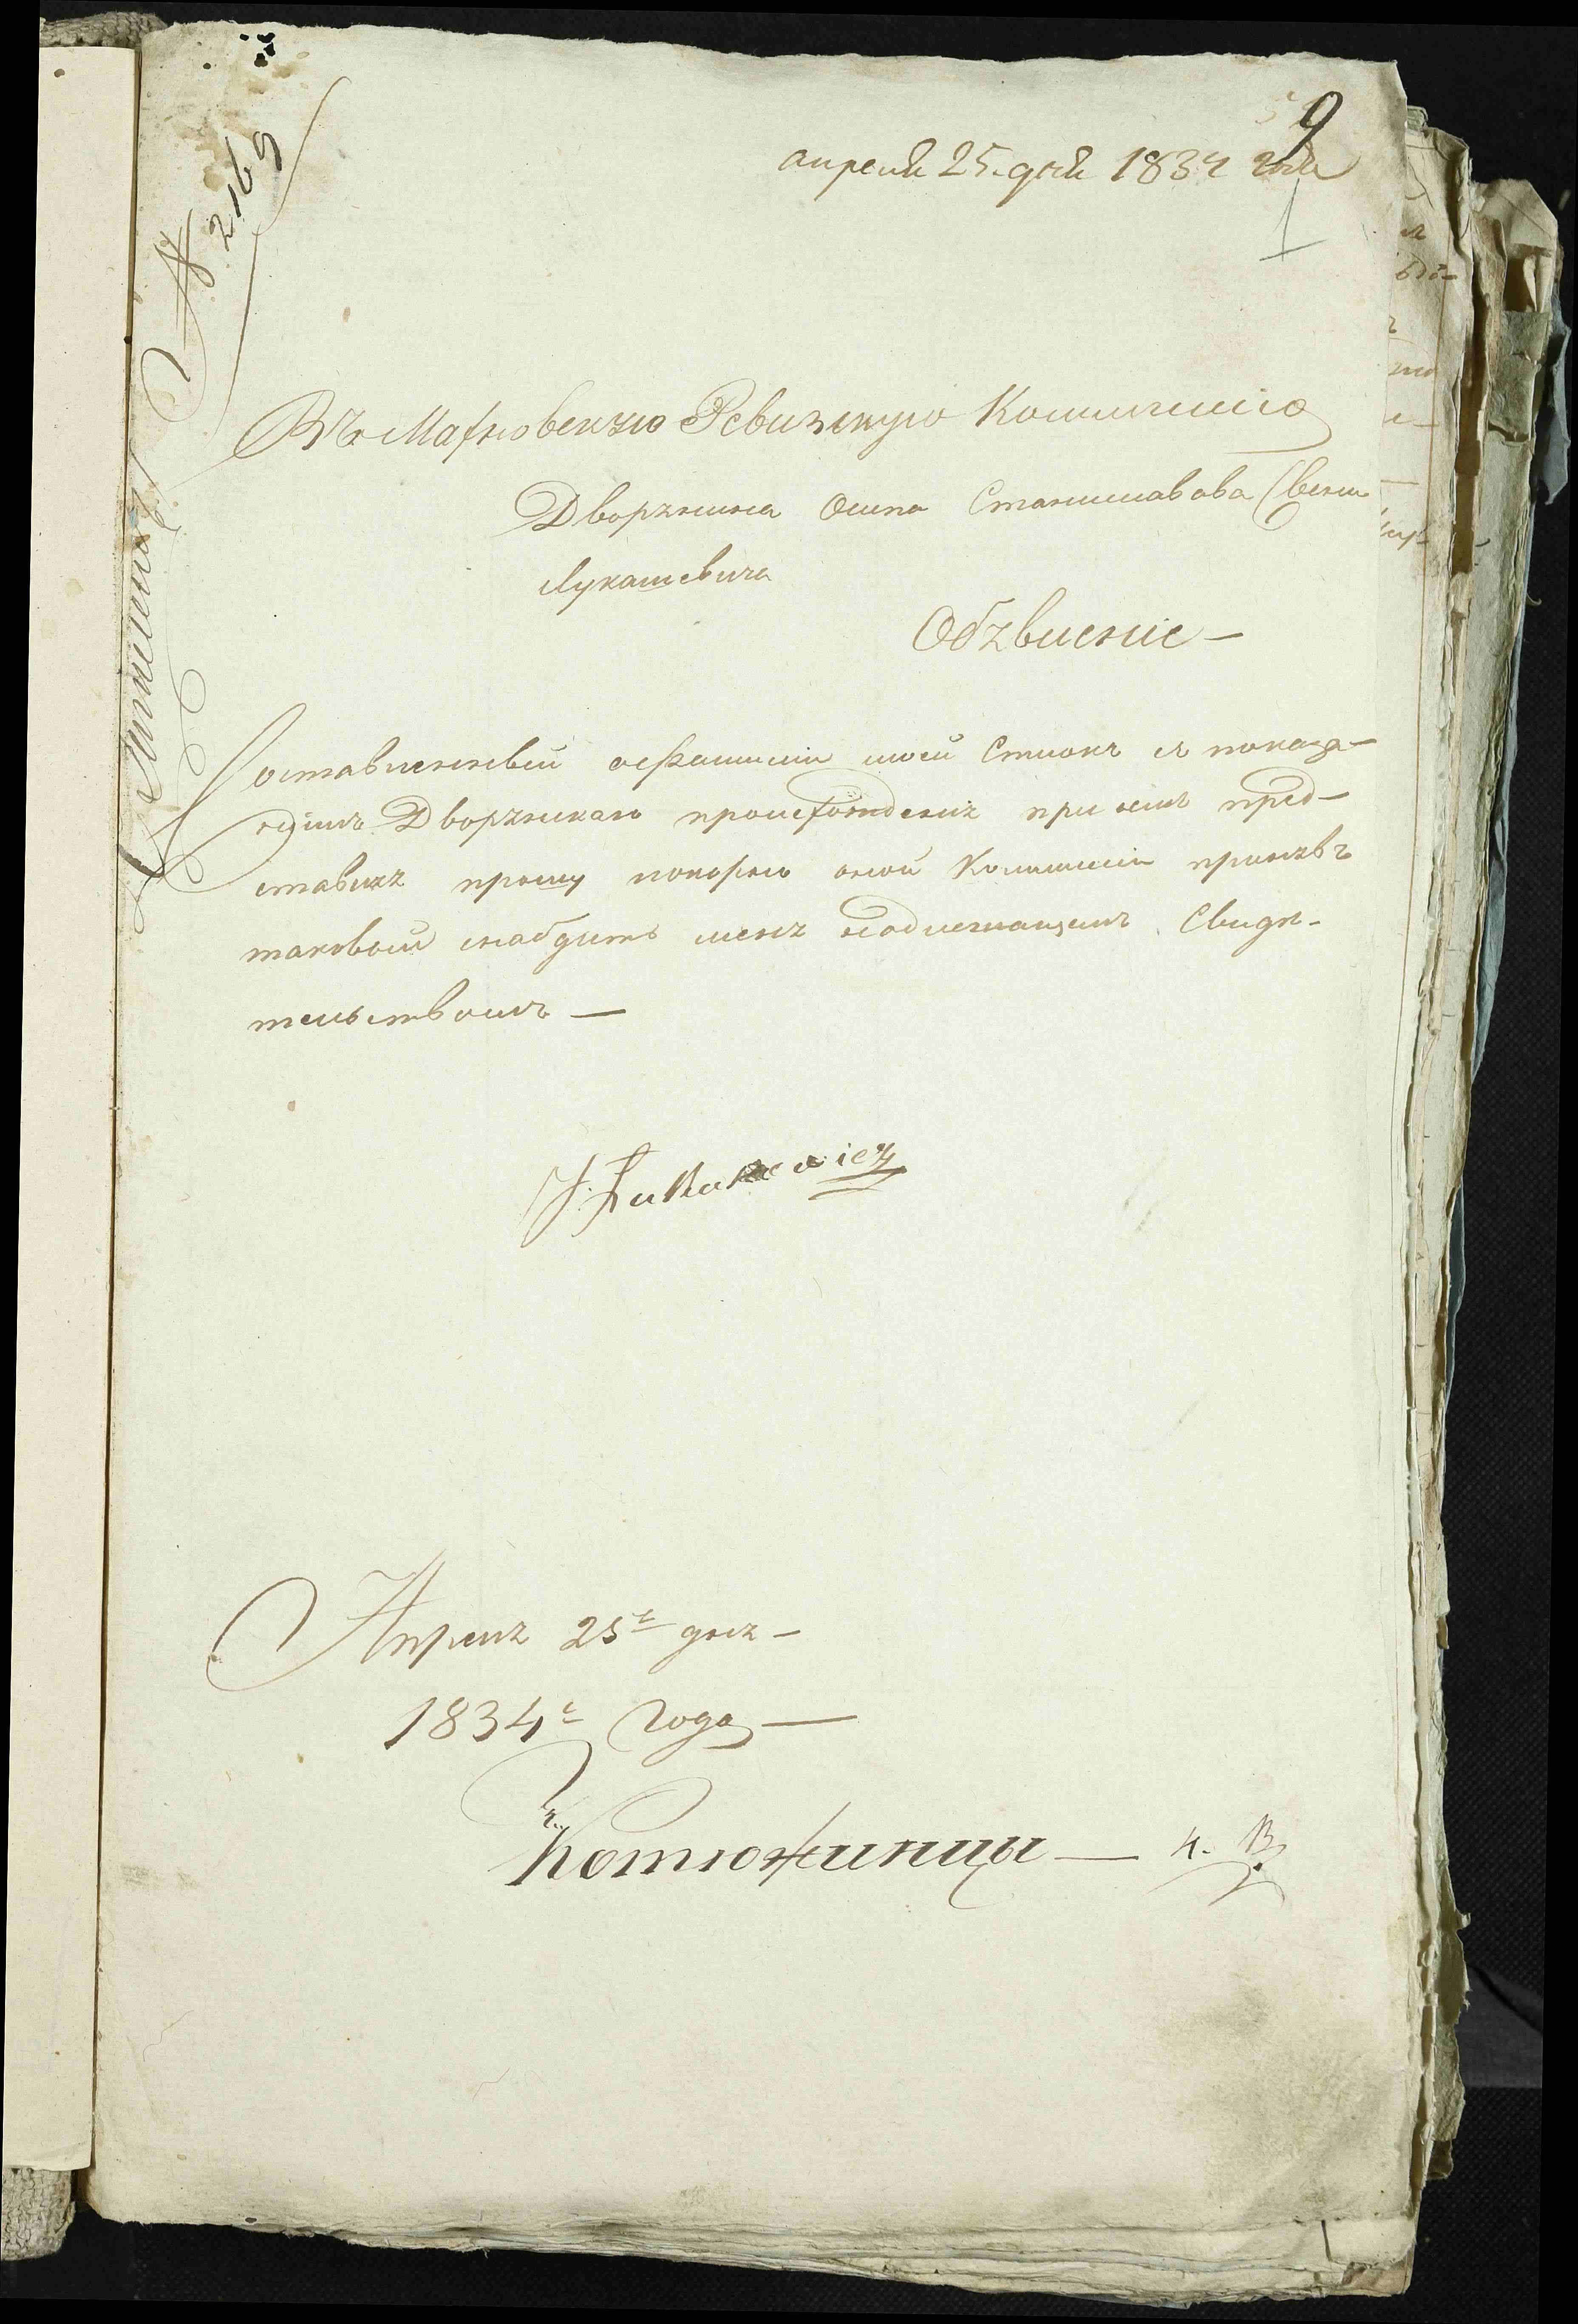 9
апреля 25. дня 1834 года
1
№ 2169
Въ Махновскую Ревизскую Коммисію
Дворянина Осипа Станиславова Сына
Лукашевича
Объявленіе —
Составленный о фамиліи моей Списокъ съ показа-
ніемъ Дворянскаго происхожденія при семъ пред-
ставляя прошу покорно оной Коммисіи принявъ
таковый снабдить меня надлежащимъ Свидѣ-
тельствомъ —
J. Łukaszewicz
Апреля 25г дня —
1834г года —
Котюжинцы —